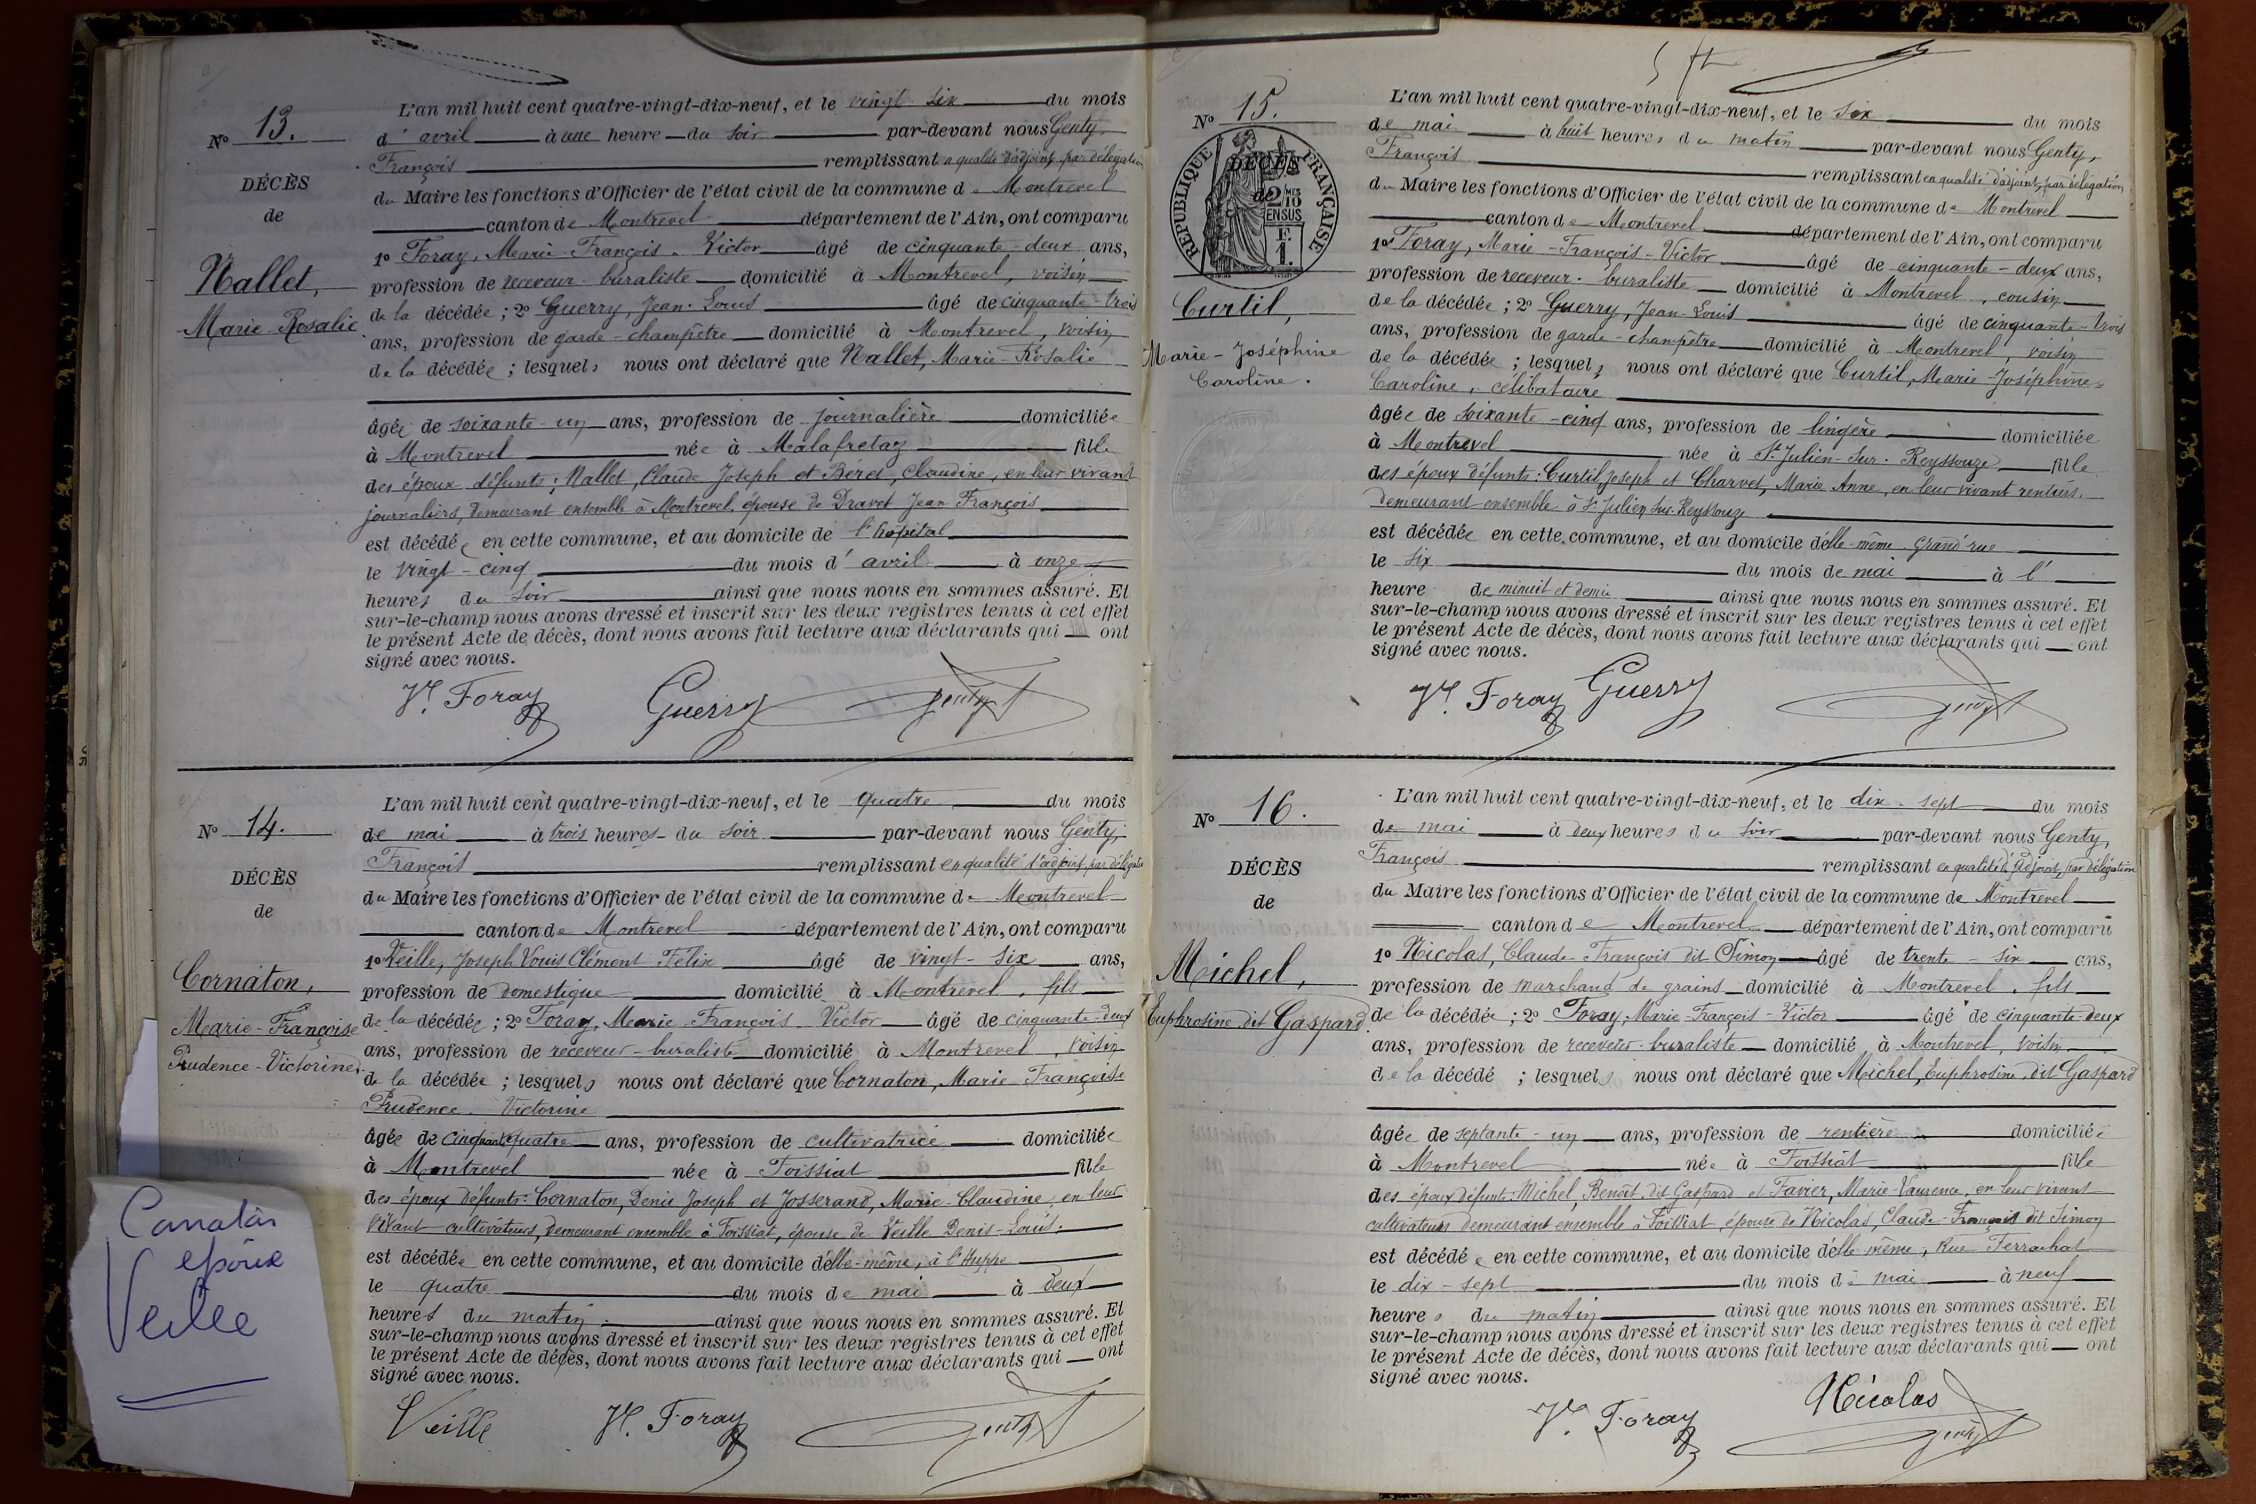 N° 13.
DÉCÈS
de
Nallet,
Marie-Rosalie
L'an mil huit cent quatre-vingt-dix-neuf, et le vingt-six du mois
d'avril à une heure du soir par-devant nous Genty,
François remplissant en qualité d'adjoint, par délégation
du Maire les fonctions d'Officier de l'état civil de la commune de Montrevel
canton de Montrevel département de l'Ain, ont comparu
1° Foray, Marie-François-Victor âgé de cinquante-deux ans,
profession de receveur-buraliste domicilié à Montrevel, voisin
de la décédée ; 2° Guerry, Jean-Louis âgé de cinquante-trois
ans, profession de garde-champêtre domicilié à Montrevel, voisin
de la décédée ; lesquels nous ont déclaré que Nallet, Marie-Rosalie
âgée de soixante-un ans, profession de journalière domiciliée
à Montrevel née à Malafretaz fille
des époux défunts : Nallet, Claude Joseph et Beret, Claudine, en leur vivant
journaliers, demeurant ensemble à Montrevel, épouse de Dravet Jean François
est décédée en cette commune, et au domicile de l'hôpital
le vingt-cinq du mois d'avril à onze
heures du soir ainsi que nous nous en sommes assuré. Et
sur-le-champ nous avons dressé et inscrit sur les deux registres tenus à cet effet
le présent Acte de décès, dont nous avons fait lecture aux déclarants qui ont
signé avec nous.
Vr. Foray Guerry Genty
N° 14.
DÉCÈS
de
Cornaton,
Marie-Françoise
Prudence-Victorine.
L'an mil huit cent quatre-vingt-dix-neuf, et le quatre du mois
de mai à trois heures du soir par-devant nous Genty,
François remplissant en qualité d'adjoint, par délégation
du Maire les fonctions d'Officier de l'état civil de la commune de Montrevel
canton de Montrevel département de l'Ain, ont comparu
1° Veille, Joseph Louis Clément Félix âgé de vingt-six ans,
profession de domestique domicilié à Montrevel, fils
de la décédée ; 2° Foray, Marie-François-Victor âgé de cinquante-deux
ans, profession de receveur-buraliste domicilié à Montrevel, voisin
de la décédée ; lesquels nous ont déclaré que Cornaton, Marie-Françoise
Prudence-Victorine
âgée de cinquante-quatre ans, profession de cultivatrice domiciliée
à Montrevel née à Foissiat fille
des époux défunts : Cornaton, Denis Joseph et Josserand, Marie-Claudine, en leur
vivant cultivateurs, demeurant ensemble à Foissiat, épouse de Veille Denis-Louis.
est décédée en cette commune, et au domicile d'elle-même, à l'Huppe
le quatre du mois de mai à deux
heures du matin ainsi que nous nous en sommes assuré. Et
sur-le-champ nous avons dressé et inscrit sur les deux registres tenus à cet effet
le présent Acte de décès, dont nous avons fait lecture aux déclarants qui ont
signé avec nous.
Veille Vr. Foray Genty
epoux
Veille
N° 15.
RÉPUBLIQUE FRANÇAISE
2/10
EN SUS
F.
1.
DÉCÈS
de
Curtil,
Marie-Joséphine
Caroline.
L'an mil huit cent quatre-vingt-dix-neuf, et le six du mois
de mai à huit heures du matin par-devant nous Genty,
François remplissant en qualité d'adjoint, par délégation
du Maire les fonctions d'Officier de l'état civil de la commune de Montrevel
canton de Montrevel département de l'Ain, ont comparu
1° Foray, Marie-François-Victor âgé de cinquante-deux ans,
profession de receveur-buraliste domicilié à Montrevel, cousin
de la décédée ; 2° Guerry, Jean-Louis âgé de cinquante-trois
ans, profession de garde-champêtre domicilié à Montrevel, voisin
de la décédée ; lesquels nous ont déclaré que Curtil, Marie Joséphine-
Caroline, célibataire
âgée de soixante-cinq ans, profession de lingère domiciliée
à Montrevel née à St. Julien-sur-Reyssouze fille
des époux défunts : Curtil Joseph et Charvet, Marie Anne, en leur vivant rentiers.
demeurant ensemble à St. Julien sur-Reyssouze
est décédée en cette commune, et au domicile d'elle-même Grand'rue
le six du mois de mai à l'
heure de minuit et demie ainsi que nous nous en sommes assuré. Et
sur-le-champ nous avons dressé et inscrit sur les deux registres tenus à cet effet
le présent Acte de décès, dont nous avons fait lecture aux déclarants qui ont
signé avec nous.
Vr. Foray Guerry Genty
N° 16.
DÉCÈS
de
Michel,
Euphrosine dit Gaspard
L'an mil huit cent quatre-vingt-dix-neuf, et le dix-sept du mois
de mai à deux heures du soir par-devant nous Genty,
François remplissant en qualité d'Adjoint, par délégation
du Maire les fonctions d'Officier de l'état civil de la commune de Montrevel
canton de Montrevel département de l'Ain, ont comparu
1° Nicolas, Claude-François dit Simon âgé de trente-six ans,
profession de marchand de grains domicilié à Montrevel, fils
de la décédée ; 2° Foray, Marie-François-Victor âgé de cinquante-deux
ans, profession de receveur-buraliste domicilié à Montrevel, voisin
de la décédé ; lesquels nous ont déclaré que Michel, Euphrosine, dit Gaspard
âgée de septante-un ans, profession de rentière domiciliée
à Montrevel née à Foissiat fille
des époux défunts : Michel, Benoît, dit Gaspard et Favier, Marie-Laurence, en leur vivant
cultivateurs demeurant ensemble à Foissiat, épouse de Nicolas, Claude-François dit Simon
est décédée en cette commune, et au domicile d'elle même, Rue Ferrachat
le dix-sept du mois de mai à neuf
heures du matin ainsi que nous nous en sommes assuré. Et
sur-le-champ nous avons dressé et inscrit sur les deux registres tenus à cet effet
le présent Acte de décès, dont nous avons fait lecture aux déclarants qui ont
signé avec nous.
Vr. Foray Nicolas Genty